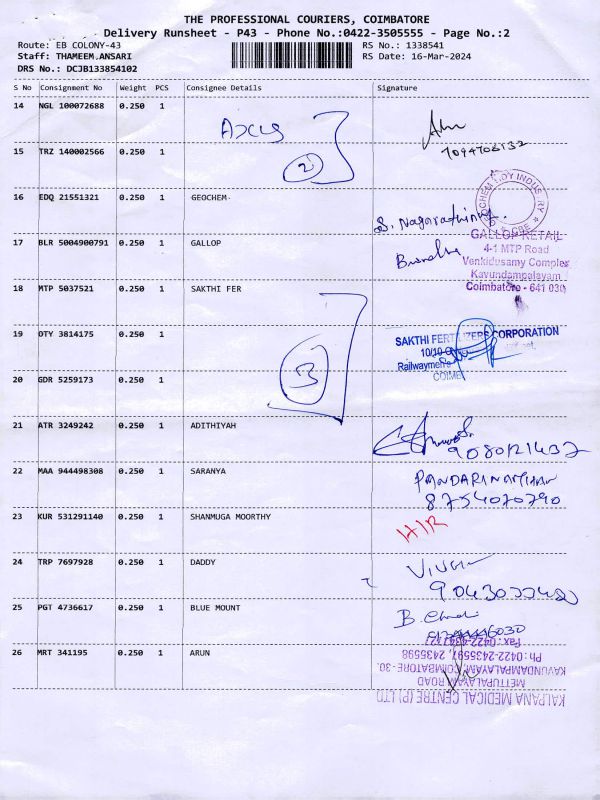 THE PROFESSIONAL COURIERS, COIMBATORE
Delivery Runsheet - P43 - Phone No.:0422-3505555 - Page No.:2
Route: EB COLONY-43 RS No.: 1338541
Staff: THAMEEM.ANSARI RS Date: 16-Mar-2024
DRS No.: DCJB133854102
S No Consignment No Weight PCS Consignee Details Signature
14 NGL 100072688 0.250 1
AXIS
2
7094706132
15 TRZ 140002566 0.250 1
16 EDQ 21551321 0.250 1 GEOCHEM-
S. Nagarathinam.
17 BLR 5004900791 0.250 1 GALLOP
GALLOP RETAIL
4-1 MTP Road
Venkidusamy Complex
Kavundampalayam
Coimbatore - 641 030
18 MTP 5037521 0.250 1 SAKTHI FER
19 OTY 3814175 0.250 1
SAKTHI FERTILIZERS CORPORATION
3
20 GDR 5259173 0.250 1
21 ATR 3249242 0.250 1 ADITHIYAH
9080121437
22 MAA 944498308 0.250 1 SARANYA
PANDARINATHAN
8754070790
23 KUR 531291140 0.250 1 SHANMUGA MOORTHY
24 TRP 7697928 0.250 1 DADDY
25 PGT 4736617 0.250 1 BLUE MOUNT
26 MRT 341195 0.250 1 ARUN
KALPANA MEDICAL CENTRE (P) LTD
METTUPALAYAM ROAD
KAVUNDAMPALAYAM, COIMBATORE-30.
Ph:0422-2435597, 2435598